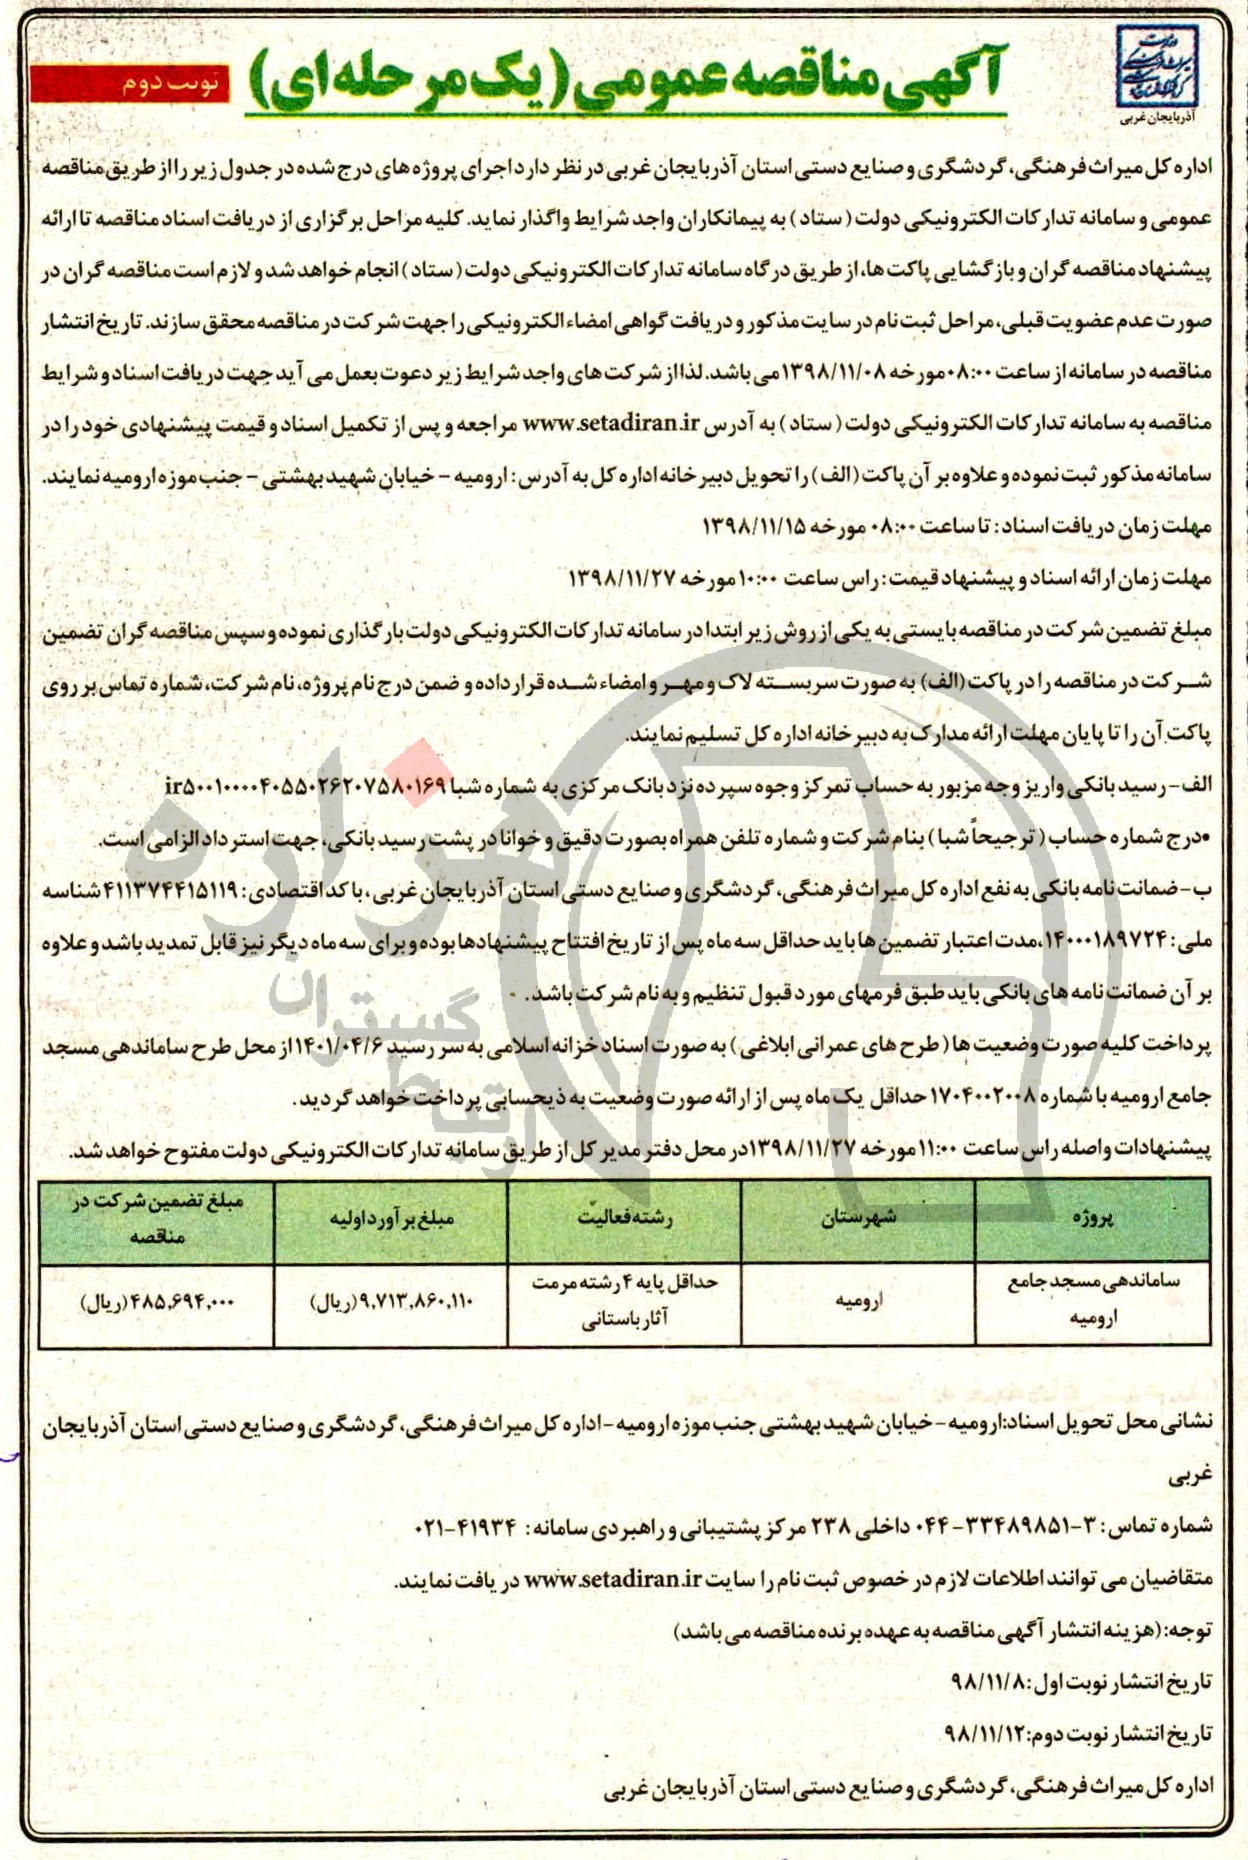 آذربایجان غربی
آگهی مناقصه عمومی (یک مرحله ای)
نوبت دوم
اداره کل میراث فرهنگی، گردشگری و صنایع دستی استان آذربایجان غربی در نظر دارد اجرای پروژه های درج شده در جدول زیر را از طریق مناقصه
عمومی و سامانه تدارکات الکترونیکی دولت (ستاد) به پیمانکاران واجد شرایط واگذار نماید. کلیه مراحل برگزاری از دریافت اسناد مناقصه تا ارائه
پیشنهاد مناقصه گران و بازگشایی پاکت ها، از طریق درگاه سامانه تدارکات الکترونیکی دولت (ستاد) انجام خواهد شد و لازم است مناقصه گران در
صورت عدم عضویت قبلی، مراحل ثبت نام در سایت مذکور و دریافت گواهی امضاء الکترونیکی را جهت شرکت در مناقصه محقق سازند. تاریخ انتشار
مناقصه در سامانه از ساعت ۰۸:۰۰ مورخه ۱۳۹۸/۱۱/۰۸ می باشد. لذا از شرکت های واجد شرایط زیر دعوت بعمل می آید جهت دریافت اسناد و شرایط
مناقصه به سامانه تدارکات الکترونیکی دولت (ستاد) به آدرس www.setadiran.ir مراجعه و پس از تکمیل اسناد و قیمت پیشنهادی خود را در
سامانه مذکور ثبت نموده و علاوه بر آن پاکت (الف) را تحویل دبیرخانه اداره کل به آدرس: ارومیه – خیابان شهید بهشتی – جنب موزه ارومیه نمایند.
مهلت زمان دریافت اسناد: تا ساعت ۰۸:۰۰ مورخه ۱۳۹۸/۱۱/۱۵
مهلت زمان ارائه اسناد و پیشنهاد قیمت: راس ساعت ۱۰:۰۰ مورخه ۱۳۹۸/۱۱/۲۷
مبلغ تضمین شرکت در مناقصه بایستی به یکی از روش زیر ابتدا در سامانه تدارکات الکترونیکی دولت بارگذاری نموده و سپس مناقصه گران تضمین
شرکت در مناقصه را در پاکت (الف) به صورت سربسته لاک و مهر و امضاء شده قرار داده و ضمن درج نام پروژه، نام شرکت، شماره تماس بر روی
پاکت آن را تا پایان مهلت ارائه مدارک به دبیرخانه اداره کل تسلیم نمایند.
الف- رسید بانکی واریز وجه مزبور به حساب تمرکز وجوه سپرده نزد بانک مرکزی به شماره شبا ir۵۰۰۱۰۰۰۰۴۰۵۵۰۲۶۲۰۷۵۸۰۱۶۹
•درج شماره حساب (ترجیحاً شبا) بنام شرکت و شماره تلفن همراه بصورت دقیق و خوانا در پشت رسید بانکی، جهت استرداد الزامی است.
ب- ضمانت نامه بانکی به نفع اداره کل میراث فرهنگی، گردشگری و صنایع دستی استان آذربایجان غربی، با کد اقتصادی: ۴۱۱۳۷۴۴۱۵۱۱۹ شناسه
ملی: ۱۴۰۰۰۱۸۹۷۲۴، مدت اعتبار تضمین ها باید حداقل سه ماه پس از تاریخ افتتاح پیشنهادها بوده و برای سه ماه دیگر نیز قابل تمدید باشد و علاوه
بر آن ضمانت نامه های بانکی باید طبق فرمهای مورد قبول تنظیم و به نام شرکت باشد.
پرداخت کلیه صورت وضعیت ها (طرح های عمرانی ابلاغی) به صورت اسناد خزانه اسلامی به سررسید ۱۴۰۱/۰۴/۶ از محل طرح ساماندهی مسجد
جامع ارومیه با شماره ۱۷۰۴۰۰۲۰۰۸ حداقل یک ماه پس از ارائه صورت وضعیت به ذیحسابی پرداخت خواهد گردید.
پیشنهادات واصله راس ساعت ۱۱:۰۰ مورخه ۱۳۹۸/۱۱/۲۷ در محل دفتر مدیر کل از طریق سامانه تدارکات الکترونیکی دولت مفتوح خواهد شد.
پروژه شهرستان رشته فعالیت مبلغ برآورد اولیه مبلغ تضمین شرکت در
مناقصه
ساماندهی مسجد جامع
ارومیه
ارومیه
حداقل پایه ۴ رشته مرمت
آثار باستانی
۹,۷۱۳,۸۶۰,۱۱۰(ریال)
۴۸۵,۶۹۴,۰۰۰(ریال)
نشانی محل تحویل اسناد: ارومیه – خیابان شهید بهشتی جنب موزه ارومیه – اداره کل میراث فرهنگی، گردشگری و صنایع دستی استان آذربایجان
غربی
شماره تماس: ۳-۳۳۴۸۹۸۵۱-۰۴۴ داخلی ۲۳۸ مرکز پشتیبانی و راهبردی سامانه: ۴۱۹۳۴-۰۲۱
متقاضیان می توانند اطلاعات لازم در خصوص ثبت نام را سایت www.setadiran.ir دریافت نمایند.
توجه: (هزینه انتشار آگهی مناقصه به عهده برنده مناقصه می باشد)
تاریخ انتشار نوبت اول: ۹۸/۱۱/۸
تاریخ انتشار نوبت دوم: ۹۸/۱۱/۱۲
اداره کل میراث فرهنگی، گردشگری و صنایع دستی استان آذربایجان غربی
هزاره
گستران